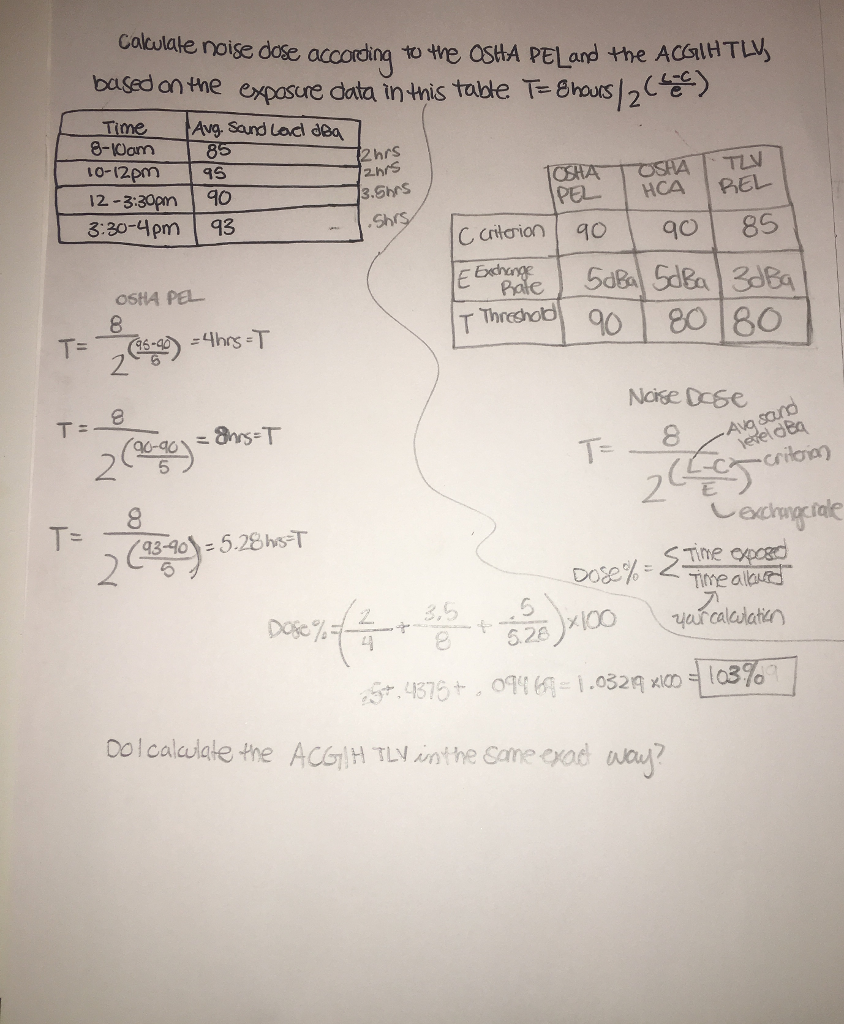 Calculate noise dose according to the OSHA PEL and the ACGIH TLV,
based on the exposure data in this table. T= 8hours/2(L-C/e)
Time Avg. Sound Level dBa
8-10am 85 2hrs
10-12pm 95 2hrs
12-3:30pm 90 3.5hrs
3:30-4pm 93 .5hrs
OSHA PEL OSHA HCA TLV REL
C criterion 90 90 85
E Exchange Rate 5dBa 5dBa 3dBa
T Threshold 90 80 80
OSHA PEL
T= 8/2(95-90/5) = 4hrs = T
T= 8/2(90-90/5) = 8hrs = T
T= 8/2(93-90/5) = 5.28hrs=T
Noise Dose
T= 8/2(L-C/E)
Avg sound
level dBa
criterion
exchange rate
Dose% = Σ Time exposed/Time allowed
your calculation
Dose% = (2/4 + 3.5/8 + .5/5.28) x100
.5+.4375+.09469=1.03219 x100 = 103%
Do I calculate the ACGIH TLV in the same exact way?